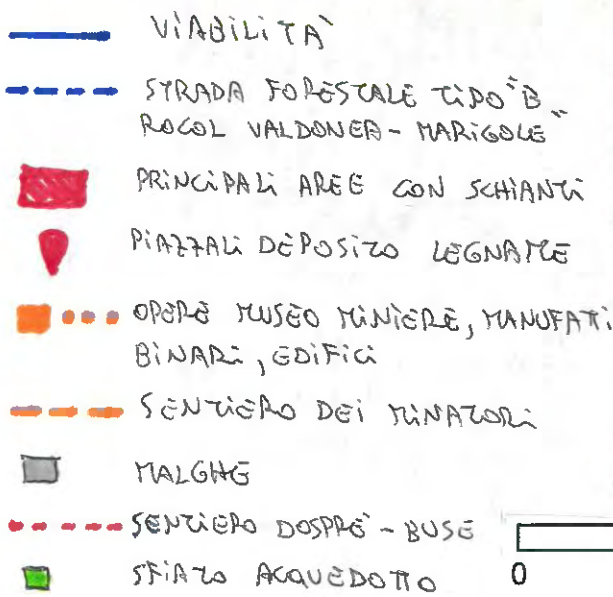 VIABILITÀ
STRADA FORESTALE TIPO "B"
ROCOL VALDONEA - MARIGOLE
PRINCIPALI AREE CON SCHIANTI
PIAZZALI DEPOSITO LEGNAME
OPERE MUSEO MINIERE, MANUFATI
BINARI, EDIFICI
SENTIERO DEI MINATORI
MALGHE
SENTIERO DOSPRÈ - BUSE
SFIATO ACQUEDOTTO
0